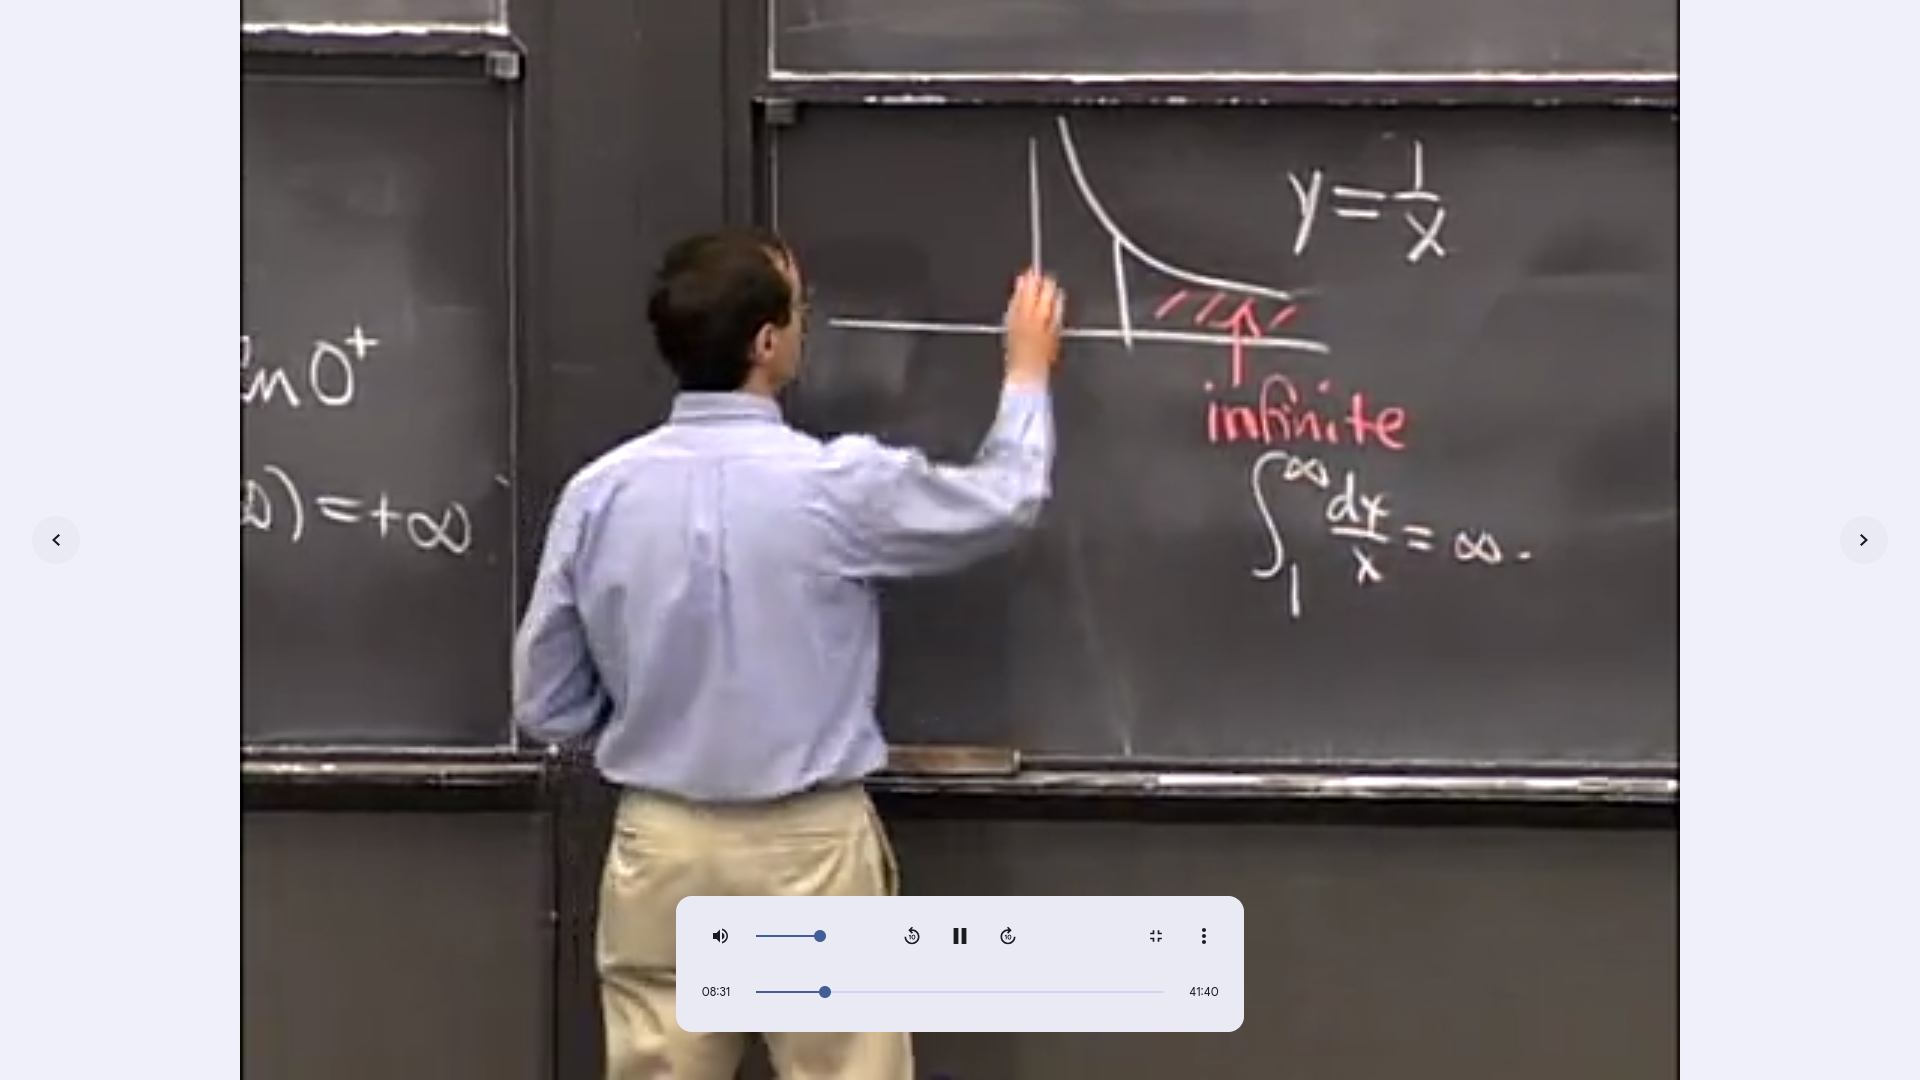 ln 0⁺
) = +∞
y = 1/x
infinite
∫₁^∞ dx/x = ∞.
10
10
08:31
41:40